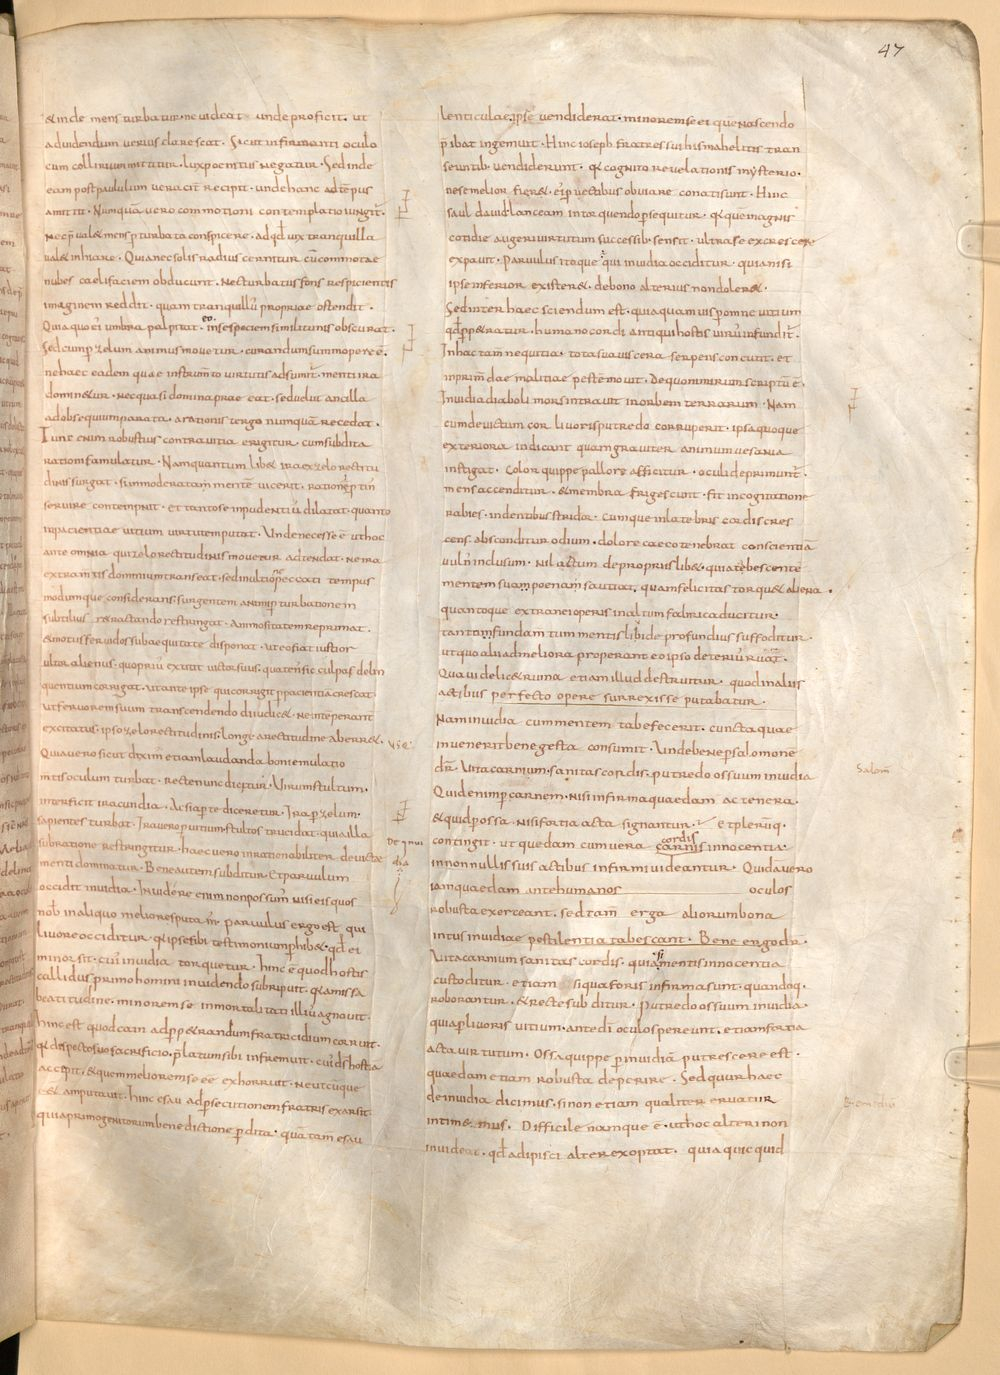 47
& inde mens turbatur ne videat unde proficit. ut
ad videndum verius clarescat. Sicut infirmanti oculo
cum collirium mittitur. lux poenitus negatur. Sed inde
eam post paululum veracit recipit. unde hanc ad tēpus
amittit. Numquā vero commotioni contemplatio iungit̄.
Nec p̄val& mens p̄turbata conspicere. ad qd̄ vix tranquilla
val& inhiare. Quia nec solis radius cernitur cū commotae
nubes caeli faciem obducunt. Nec turbatus fons respicientis
imaginem reddit. quam tranquillū propriae ostendit.
Quia quo ei umbra palpitat. eo in se speciem similitunis obscurat.
Sed cum p zelum animus movetur. curandum summopere ē.
ne haec eadem quae instrumto virtutis adsumit̄. menti ira
domin&ur. nec quasi domina prae eat. sed velut ancilla
ad obsequium parata. a rationis tergo numquā recedat.
Tunc enim robustius contra vitia erigitur. cum subdita
rationi famulatur. Nam quantum lib& ira ex zelo rectitu
dinis surgat. si inmoderata m̄ mentē vicerit. rationi p̄tin
servire contempnit. et tanto se inpudentiū dilatat. quanto
inpacientiae vitium virtutem putat. Unde necesse ē ut hoc
ante omnia qui zelo rectitudinis movetur adtendat. ne ira
extra mtis dominium transeat. sed in ultione peccati tempus
modumque considerans. surgentem animi p̄turbatione in
subtilius retractando restringat. Animositatem reprimat.
& motus fervidos sub aequitate disponat. ut eo fiat iustior
ultor alienus. quo priū extitit victor suus. quaten̄ sic culpas delin
quentium corrigat. ut ante ipse qui corrigit p pacientiā crescat
Ut fervorem suum transcendendo diiudic&. Ne intemperant
excitatus. ipso zelo rectitudinis. longe a rectitudine aberr&.
Quia vero sicut diximꝰ etiam laudanda boni emulatio
mtis oculum turbat. Recte nunc dicitur. Virum stultum.
interficit iracundia. Ac si aperte diceretur. Ira p zelum.
sapientes turbat. Ira vero p vitium. stultos trucidat. quia illa
sub ratione restringitur. haec vero inrationabiliter devictae
menti dominatur. Bene autem subditur. Et parvulum
occidit invidia. Invidere enim non possumꝰ nisi eis quos
nob̄ in aliquo meliores putamꝰ. parvulus ergo est qui
livore occiditur. q& ipse sibi testimonium phib&. qd̄ ei
minor sit. cuiꝰ invidia torquetur. hinc ē quod hostis
callidus primo homini invidendo subripuit. q& amissa
beatitudine. minorem se inmortalitati illiꝰ agnovit.
hinc est quod cain ad p̄p&randum fratricidium corruit.
q& dispecto suo sacrificio. p̄latum sibi infremuit. cuiꝰ ds̄ hostiā
accepit. & quem meliorem se eē exhorruit. Ne utcuque
ēē& amputavit. hinc esau ad psecutionem fratris exarsit
quia primogenitorum benedictione pdita. quā tam esau
lenticulae ipse vendiderat. minorem se ei quem nascendo
p̄ibat ingemuit. Hinc ioseph fratres sui hismahelitis tran
seuntib: vendiderunt. q& cognito revelationis mysterio.
ne se melior fier&. eiꝰ pvectibus obviare conati sunt. Hinc
saul david lanceam intorquendo psequitur. q& quem magnis
cotidie augeri virtutum successib: sensit. ultra se excrescere
expavit. Parvulus itaque qui invidia occiditur. quia nisi
ipse inferior exister&. de bono alterius non doler&.
Sed inter haec sciendum est. quia quamvis p omne vitium
qd̄ ppetratur. humano cordi antiqui hostis virus infundit̄.
In hac tam̄ nequitia. tota sua viscera serpens concutit. et
inprimendae malitiae pestē movit. De quo nimirum scriptū ē.
Invidia diaboli mors intravit in orbem terrarum. Nam
cum devictum cor livoris putredo corruperit. ipsa quoque
exteriora indicant quam graviter animum vesania
instigat. Color quippe pallore afficitur. oculi deprimunt̄.
mens accenditur. & membra frigescunt. fit in cogitatione
rabies. in dentibus stridor. Cumque in latebris cordis cres
cens absconditur odium. dolore caeco tenebrat conscientiā
vulnꝰ inclusum. Nil laetum de propriis lib&. quia tabescente
mentem sua poena sautiat. quam felicitas torqu& aliena.
quantoque extranei operis in altum fabrica ducitur.
tanto fundamtum mentis libide profundius suffoditur.
Ut quo alii ad meliora properant eo ipso deteriꝰ ruat.
Qua videlic& ruina etiam illud destruitur. quod in aliis
actibus perfecto opere surrexisse putabatur.
Nam invidia cum mentem tabefecerit. cuncta quae
invenerit bene gesta consumit. Unde bene p salomone
dr̄. Vita carnium. sanitas cordis. putredo ossuum invidia
Quid enim p carnem. nisi infirma quaedam ac tenera.
& quid p ossa. nisi fortia acta signantur. et plerūq.
contingit. ut quedam cum vera cordis carnis innocentia.
in nonnullis suis actibus infirmi videantur. Quidā vero
iam quaedam ante humanos oculos
robusta exerceant. sed tam̄ erga aliorum bona
intus invidiae pestilentia tabescant. Bene ergo dr̄.
Vita carnium sanitas cordis. quia si mentis innocentia
custoditur. etiam siqua foris infirma sunt. quandoq.
roborantur. & recte subditur. Putredo ossuum invidia.
quia p livoris vitium. ante di oculos pereunt. etiam fortia
acta virtutum. Ossa quippe p invidiā putrescere est.
quaedam etiam robusta deperire. Sed quur haec
de invidia dicimus. si non etiam qualiter eruatur
intim&mus. Difficile namque ē. ut hoc alteri non
invideat. qd̄ adipisci alter exoptat. quia quicquid
De invi
dia
Salom̄
Remediū